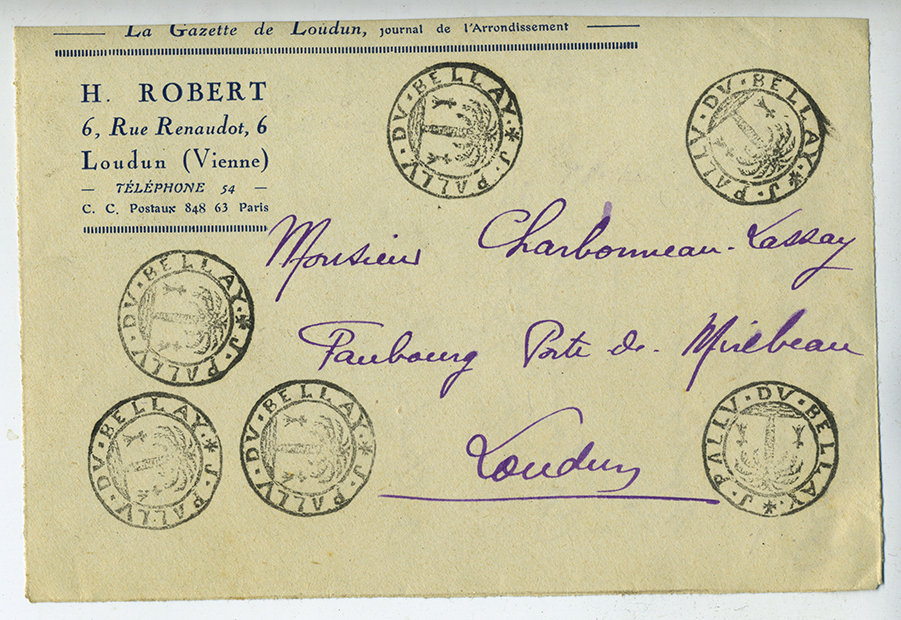 La Gazette de Loudun, journal de l'Arrondissement
H. ROBERT
6, Rue Renaudot, 6
Loudun (Vienne)
— TÉLÉPHONE 54 —
C. C. Postaux 848 63 Paris
J·PALLV·DV·BELLAY·*
J·PALLV·DV·BELLAY·*
Monsieur Charbonneau-Lassay
J·PALLV·DV·BELLAY·*
Faubourg Porte de Mirebeau
J·PALLV·DV·BELLAY·*
J·PALLV·DV·BELLAY·*
J·PALLV·DV·BELLAY·*
Loudun